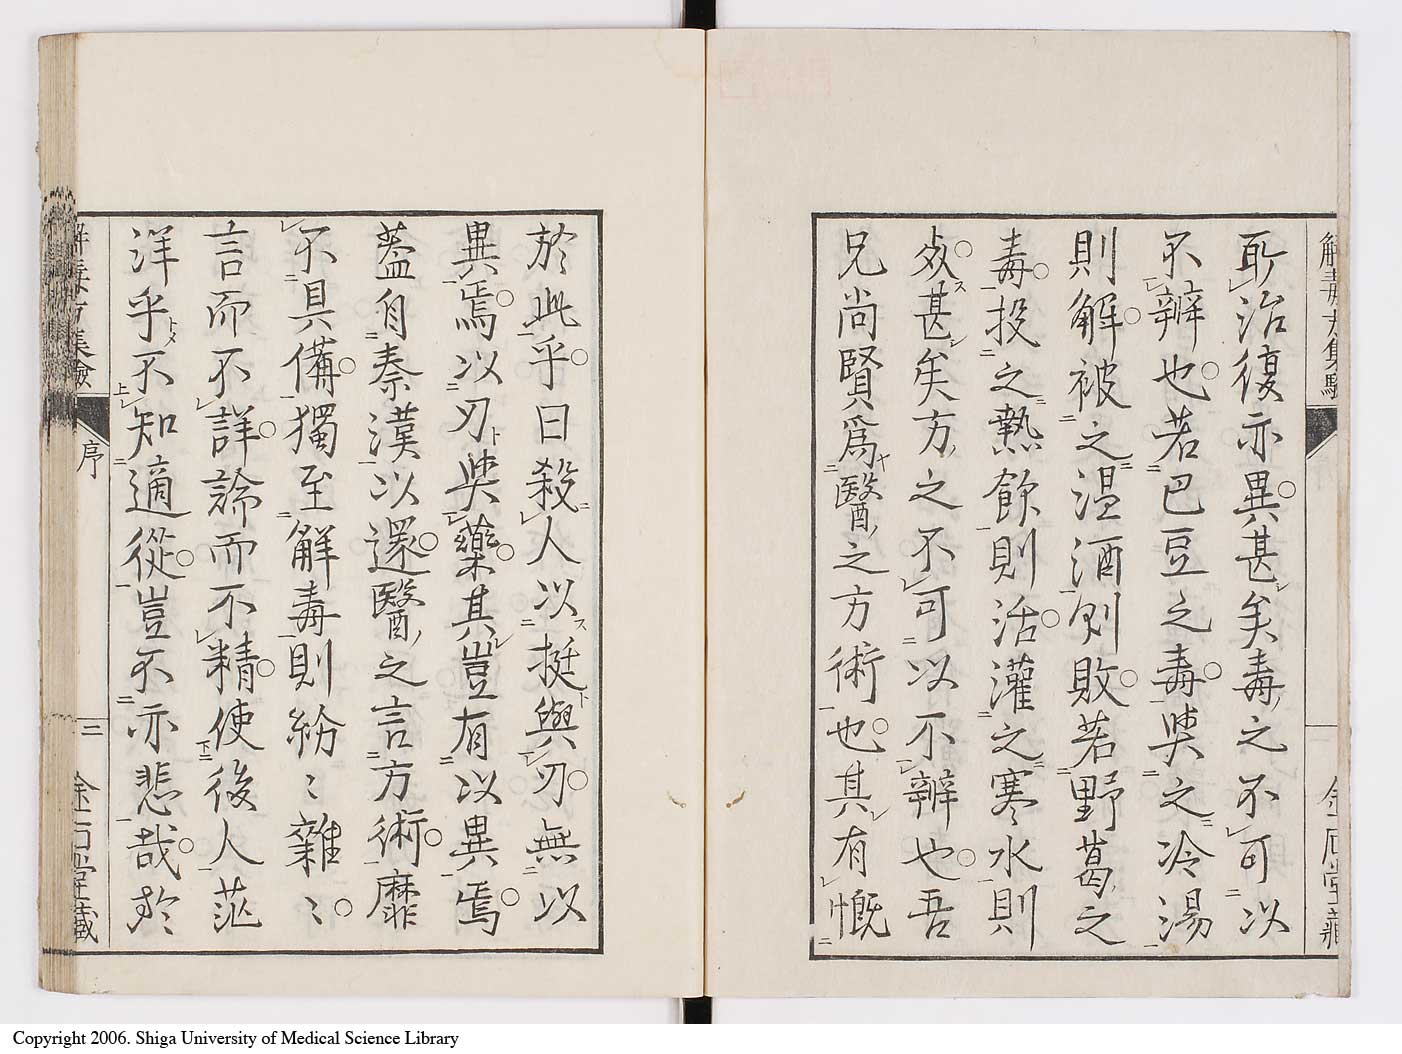 解毒方集驗
金屑堂藏
所治復亦異甚矣毒之不可以
不辨也若巴豆之毒與之冷湯
則解被之温酒則敗若野葛之
毒投之熱飲則活灌之寒水則
死甚矣方之不可以不辨也吾
兄尚賢爲醫之方術也其有慨
於此乎曰殺人以挺與刃無以
異焉以刃與藥其豈有以異焉
蓋自秦漢以還醫之言方術靡
不具備獨至解毒則紛〻雜〻
言而不詳論而不精使後人茫
洋乎不知適從豈不亦悲哉於
解毒方集驗
序
三
堂藏
Copyright 2006. Shiga University of Medical Science Library